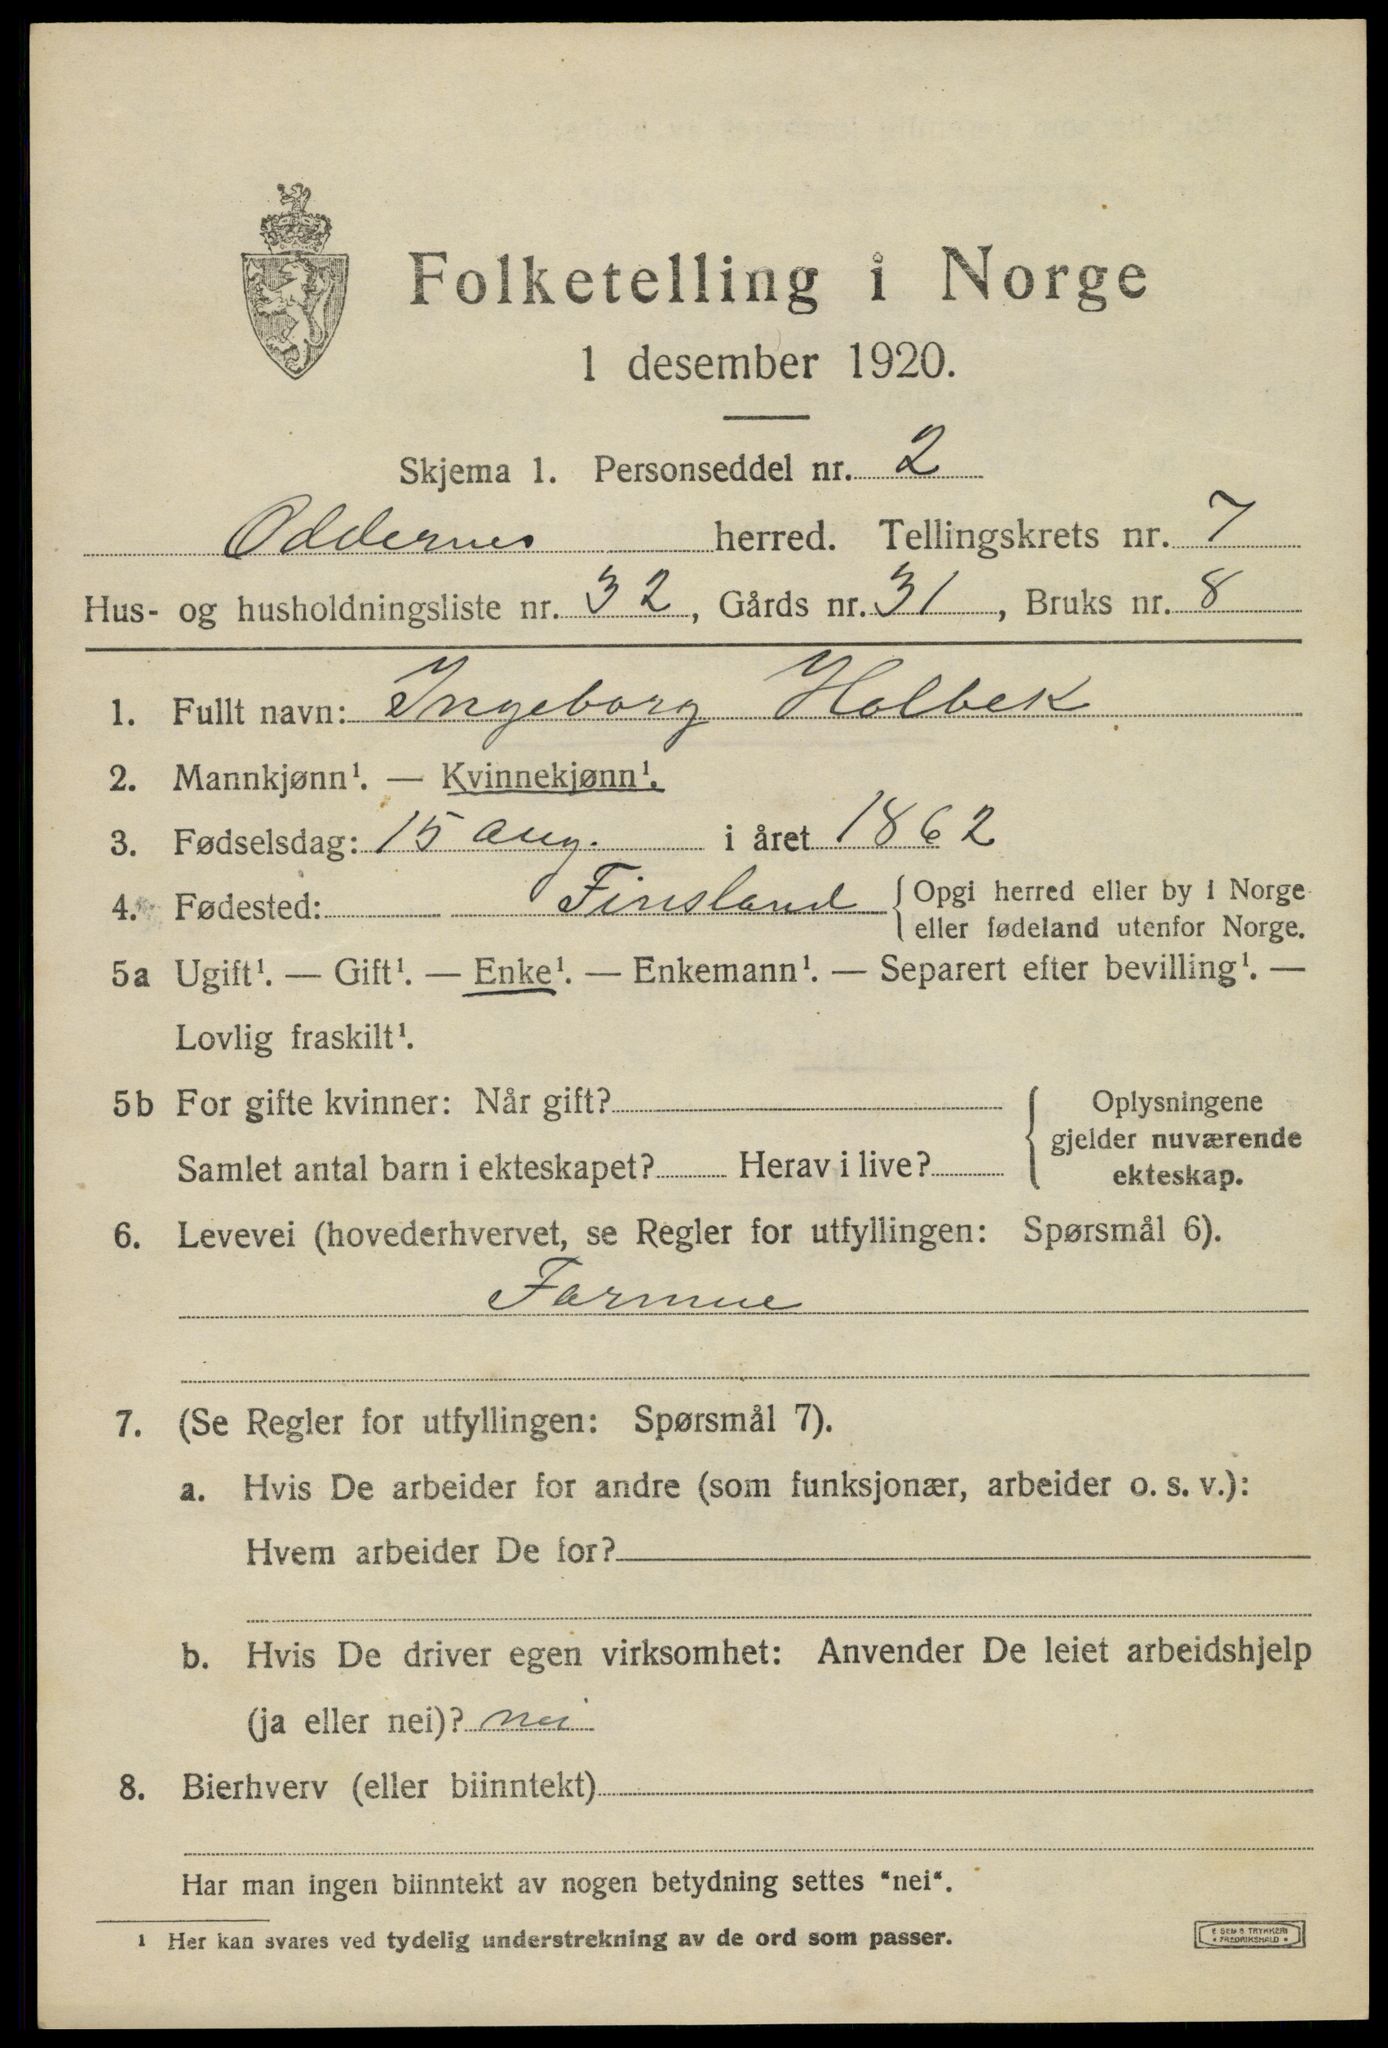 Folketelling i Norge
1 desember 1920.
Skjema 1. Personseddel nr. 2
Oddernes herred. Tellingskrets nr. 7
Hus- og husholdningsliste nr. 32, Gårds nr. 31, Bruks nr. 8
1. Fullt navn: Ingeborg Holbek
2. Mannkjønn¹. — Kvinnekjønn¹.
3. Fødselsdag: 15 aug. i året 1862
4. Fødested: Finsland {Opgi herred eller by i Norge
eller fødeland utenfor Norge.
5a Ugift¹. — Gift¹. — Enke¹. — Enkemann¹. — Separert efter bevilling¹. —
Lovlig fraskilt¹.
5b For gifte kvinner: Når gift? Oplysningene
gjelder nuværende
Samlet antal barn i ekteskapet? Herav i live?
ekteskap.
6. Levevei (hovederhvervet, se Regler for utfyllingen: Spørsmål 6).
Formue
7. (Se Regler for utfyllingen: Spørsmål 7).
a. Hvis De arbeider for andre (som funksjonær, arbeider o. s. v.):
Hvem arbeider De for?
b. Hvis De driver egen virksomhet: Anvender De leiet arbeidshjelp
(ja eller nei)? nei
8. Bierhverv (eller biinntekt)
Har man ingen biinntekt av nogen betydning settes "nei".
¹ Her kan svares ved tydelig understrekning av de ord som passer.
TRYKKERI
FREDRIKSHALD